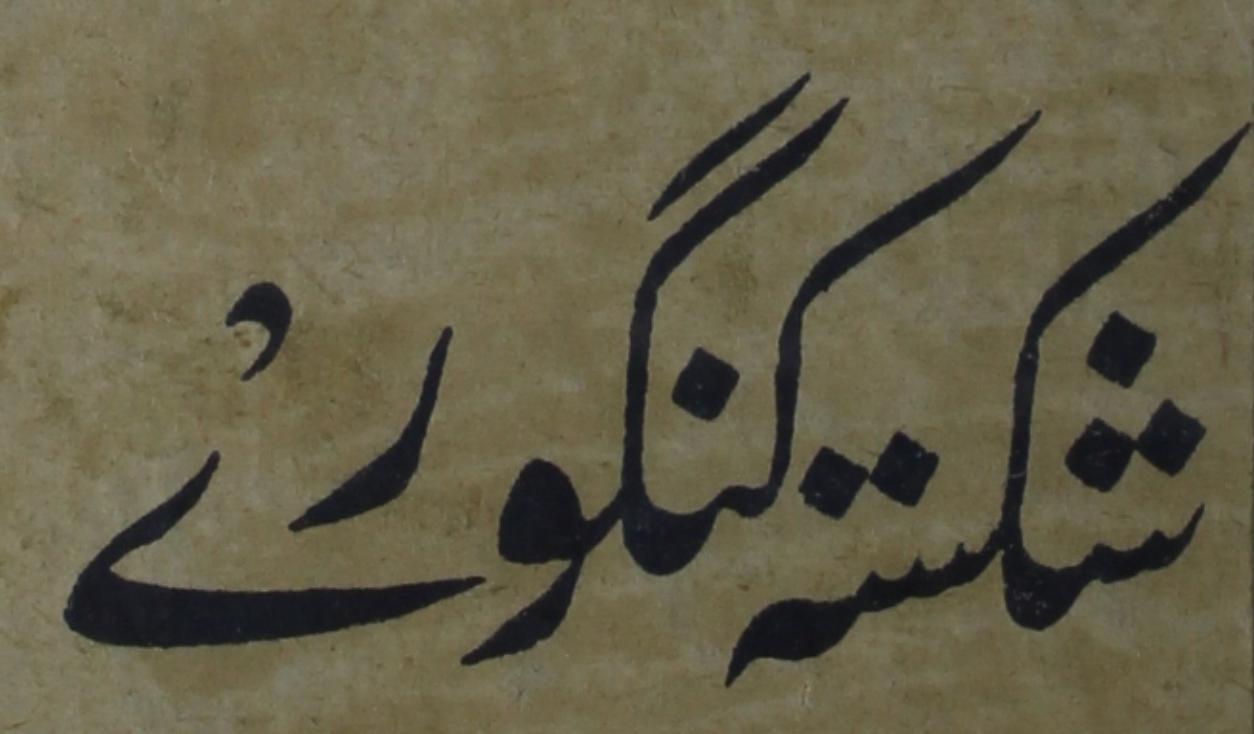 شکستہ کنگورے